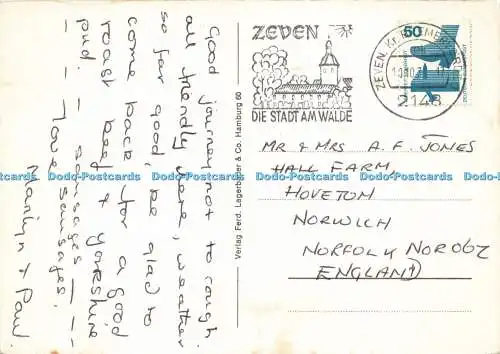 Good journey, not to rough
all friendly here, weather
so far good, be glad to
come back for a good
roast beef & yorkshire
pud. - sausages - -
- - Love sausages.
Marilyn + Paul
Verlag Ferd. Lagerbauer & Co. Hamburg 60
ZEVEN
DIE STADT AM WALDE
ZEVEN, Kr. BREMERVÖRDE
2143
50
MR & MRS A. F. JONES
HALL FARM,
HOVETON
NORWICH
NORFOLK NOR 06Z
ENGLAND
Dodo-Postcards Dodo-Postcards Dodo-Postcards Dodo-Postcards Dodo-Postcards